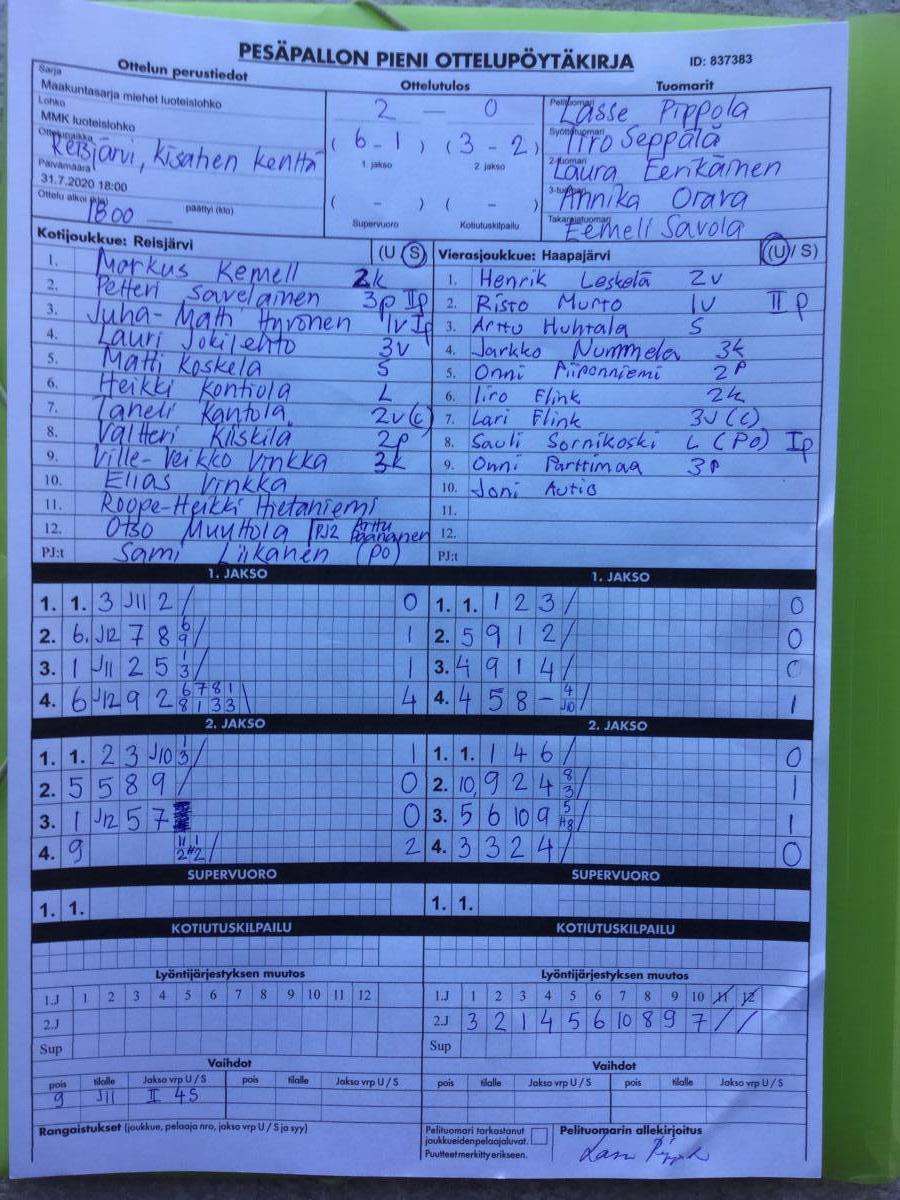 PESÄPALLON PIENI OTTELUPÖYTÄKIRJA
ID: 837383
Ottelun perustiedot
Ottelutulos
Tuomarit
Sarja
Maakuntasarja miehet luoteislohko
Lohko
MMK luoteislohko
Ottelupaikka
Reisjärvi, kisahen kenttä
Päivämäärä
31.7.2020 18:00
Ottelu alkoi (klo) 1800 päättyi (klo)
2 — 0
(6-1) (3-2)
1. jakso 2. jakso
( - ) ( - )
Supervuoro Kotiutuskilpailu
Pelituomari Lasse Pippola
Syöttötuomari Iiro Seppälä
2-tuomari Laura Eerikäinen
3-tuomari Annika Orava
Takarajatuomari Eemeli Savola
Kotijoukkue: Reisjärvi (U S)
1. Markus Kemell 2k
2. Petteri Savelainen 3p IIp
3. Juha-Matti Hyvönen 1v Ip
4. Lauri Jokilehto 3v
5. Matti Koskela S
6. Heikki Kontiola L
7. Taneli Kantola 2v (c)
8. Valtteri Kiiskilä 2p
9. Ville-Veikko Vinkka 3k
10. Elias Vinkka
11. Roope-Heikki Hietaniemi
12. Otso Muuttola PJ2 Arttu Paananen
PJ:t Sami Liikanen (PO)
Vierasjoukkue: Haapajärvi (U / S)
1. Henrik Leskelä 2v
2. Risto Murto 1v II p
3. Arttu Huhtala S
4. Jarkko Nummela 3k
5. Onni Piiponniemi 2P
6. Iiro Flink 2k
7. Lari Flink 3v (c)
8. Sauli Sornikoski L (PO) Ip
9. Onni Parttimaa 3P
10. Joni Autio
11.
12.
PJ:t
1. JAKSO
1. 1. 3 J11 2 / 0
2. 6. J12 7 8 6 9 / 1
3. 1 J11 2 5 1 3 / 1
4. 6 J12 9 2 6 7 8 1 8 1 3 3 \ 4
1. JAKSO
1. 1. 1 2 3 / 0
2. 5 9 1 2 / 0
3. 4 9 1 4 / 0
4. 4 5 8 - 4 J10 / 1
2. JAKSO
1. 1. 2 3 J10 1 3 / 1
2. 5 5 8 9 / 0
3. 1 J12 5 7 0
4. 9 / 2
2. JAKSO
1. 1. 1 4 6 / 0
2. 10, 9 2 4 8 3 / 1
3. 5 6 10 9 5 H8 / 1
4. 3 3 2 4 / 0
SUPERVUORO
1. 1.
SUPERVUORO
1. 1.
KOTIUTUSKILPAILU
KOTIUTUSKILPAILU
Lyöntijärjestyksen muutos
1.J 1 2 3 4 5 6 7 8 9 10 11 12
2.J
Sup
Lyöntijärjestyksen muutos
1.J 1 2 3 4 5 6 7 8 9 10 11 12
2.J 3 2 1 4 5 6 10 8 9 7 / /
Sup
Vaihdot
pois tilalle Jakso vrp U / S pois tilalle Jakso vrp U / S
9 J11 II 4S
Vaihdot
pois tilalle Jakso vrp U / S pois tilalle Jakso vrp U / S
Rangaistukset (joukkue, pelaaja nro, jakso vrp U / S ja syy)
Pelituomari tarkastanut
joukkueidenpelaajaluvat.
Puutteet merkitty erikseen.
Pelituomarin allekirjoitus